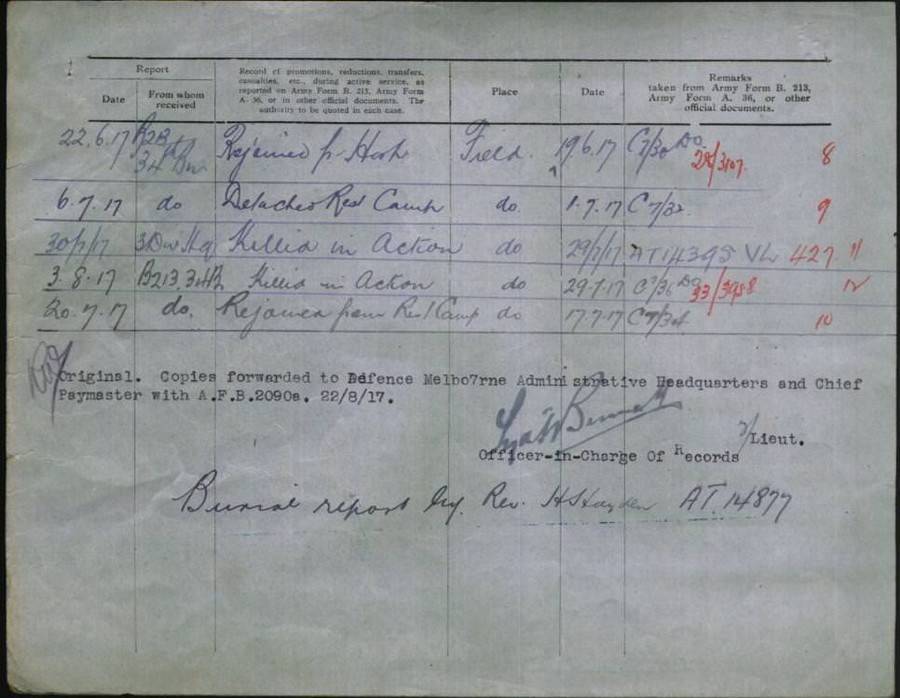 Report
Date
From whom received
Record of promotions, reductions, transfers, casualties, etc., during active service, as reported on Army Form B. 213, Army Form A. 36, or in other official documents. The authority to be quoted in each case.
Place
Date
Remarks taken from Army Form B. 213, Army Form A. 36, or other official documents.
22.6.17 34th Bn Rejoined fr Hosp Field. 19.6.17 C7/30 DO 28/3107. 8
6.7.17 do Detached Rest Camp do. 1.7.17 C7/32 9
30/7/17 3 Div Hq Killed in Action do 29/7/17 AT14395 VL 427 11
3.8.17 B213 34 Killed in Action do 29.7.17 C7/36 DO 33/3958 12
20.7.17 do. Rejoined from Rest Camp do 17.7.17 C7/34 10
Original. Copies forwarded to Defence Melbo7rne Administrative Headquarters and Chief
Paymaster with A.F.B.2090a. 22/8/17.
2/Lieut.
Officer-in-Charge Of Records
Burial report by Rev. H Hayden AT.14877